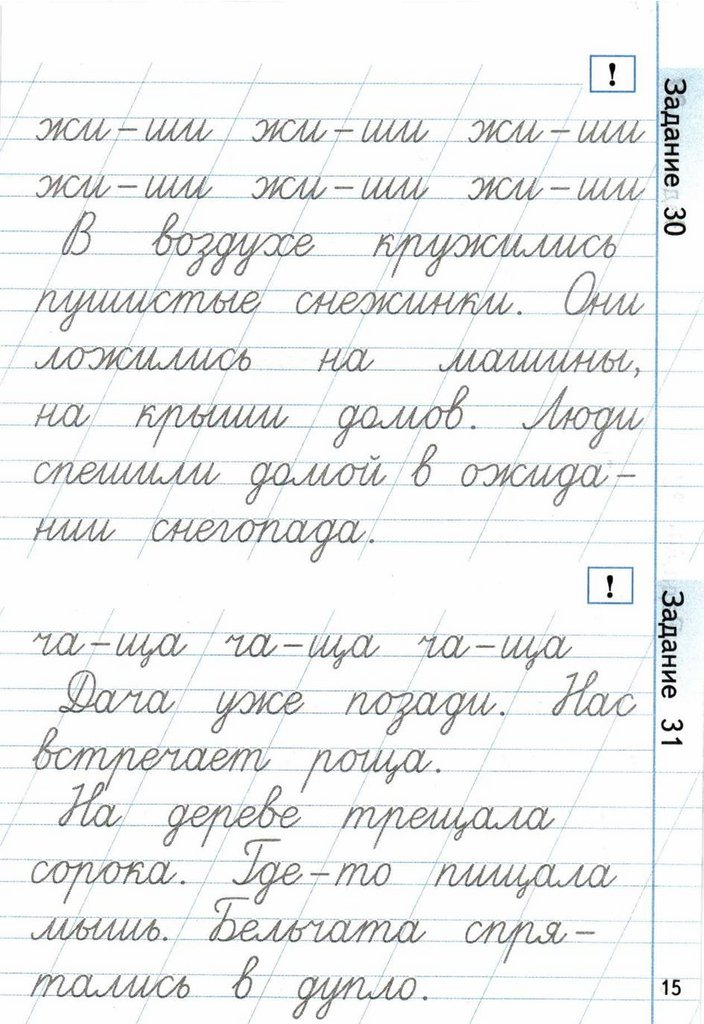 !
Задание 30
жи – ши жи – ши жи – ши
жи – ши жи – ши жи – ши
В воздухе кружились
пушистые снежинки. Они
ложились на машины,
на крыши домов. Люди
спешили домой в ожида-
нии снегопада.
!
Задание 31
ча – ща ча – ща ча – ща
Дача уже позади. Нас
встречает роща.
На дереве трещала
сорока. Где-то пищала
мышь. Бельчата спря-
тались в дупло.
15